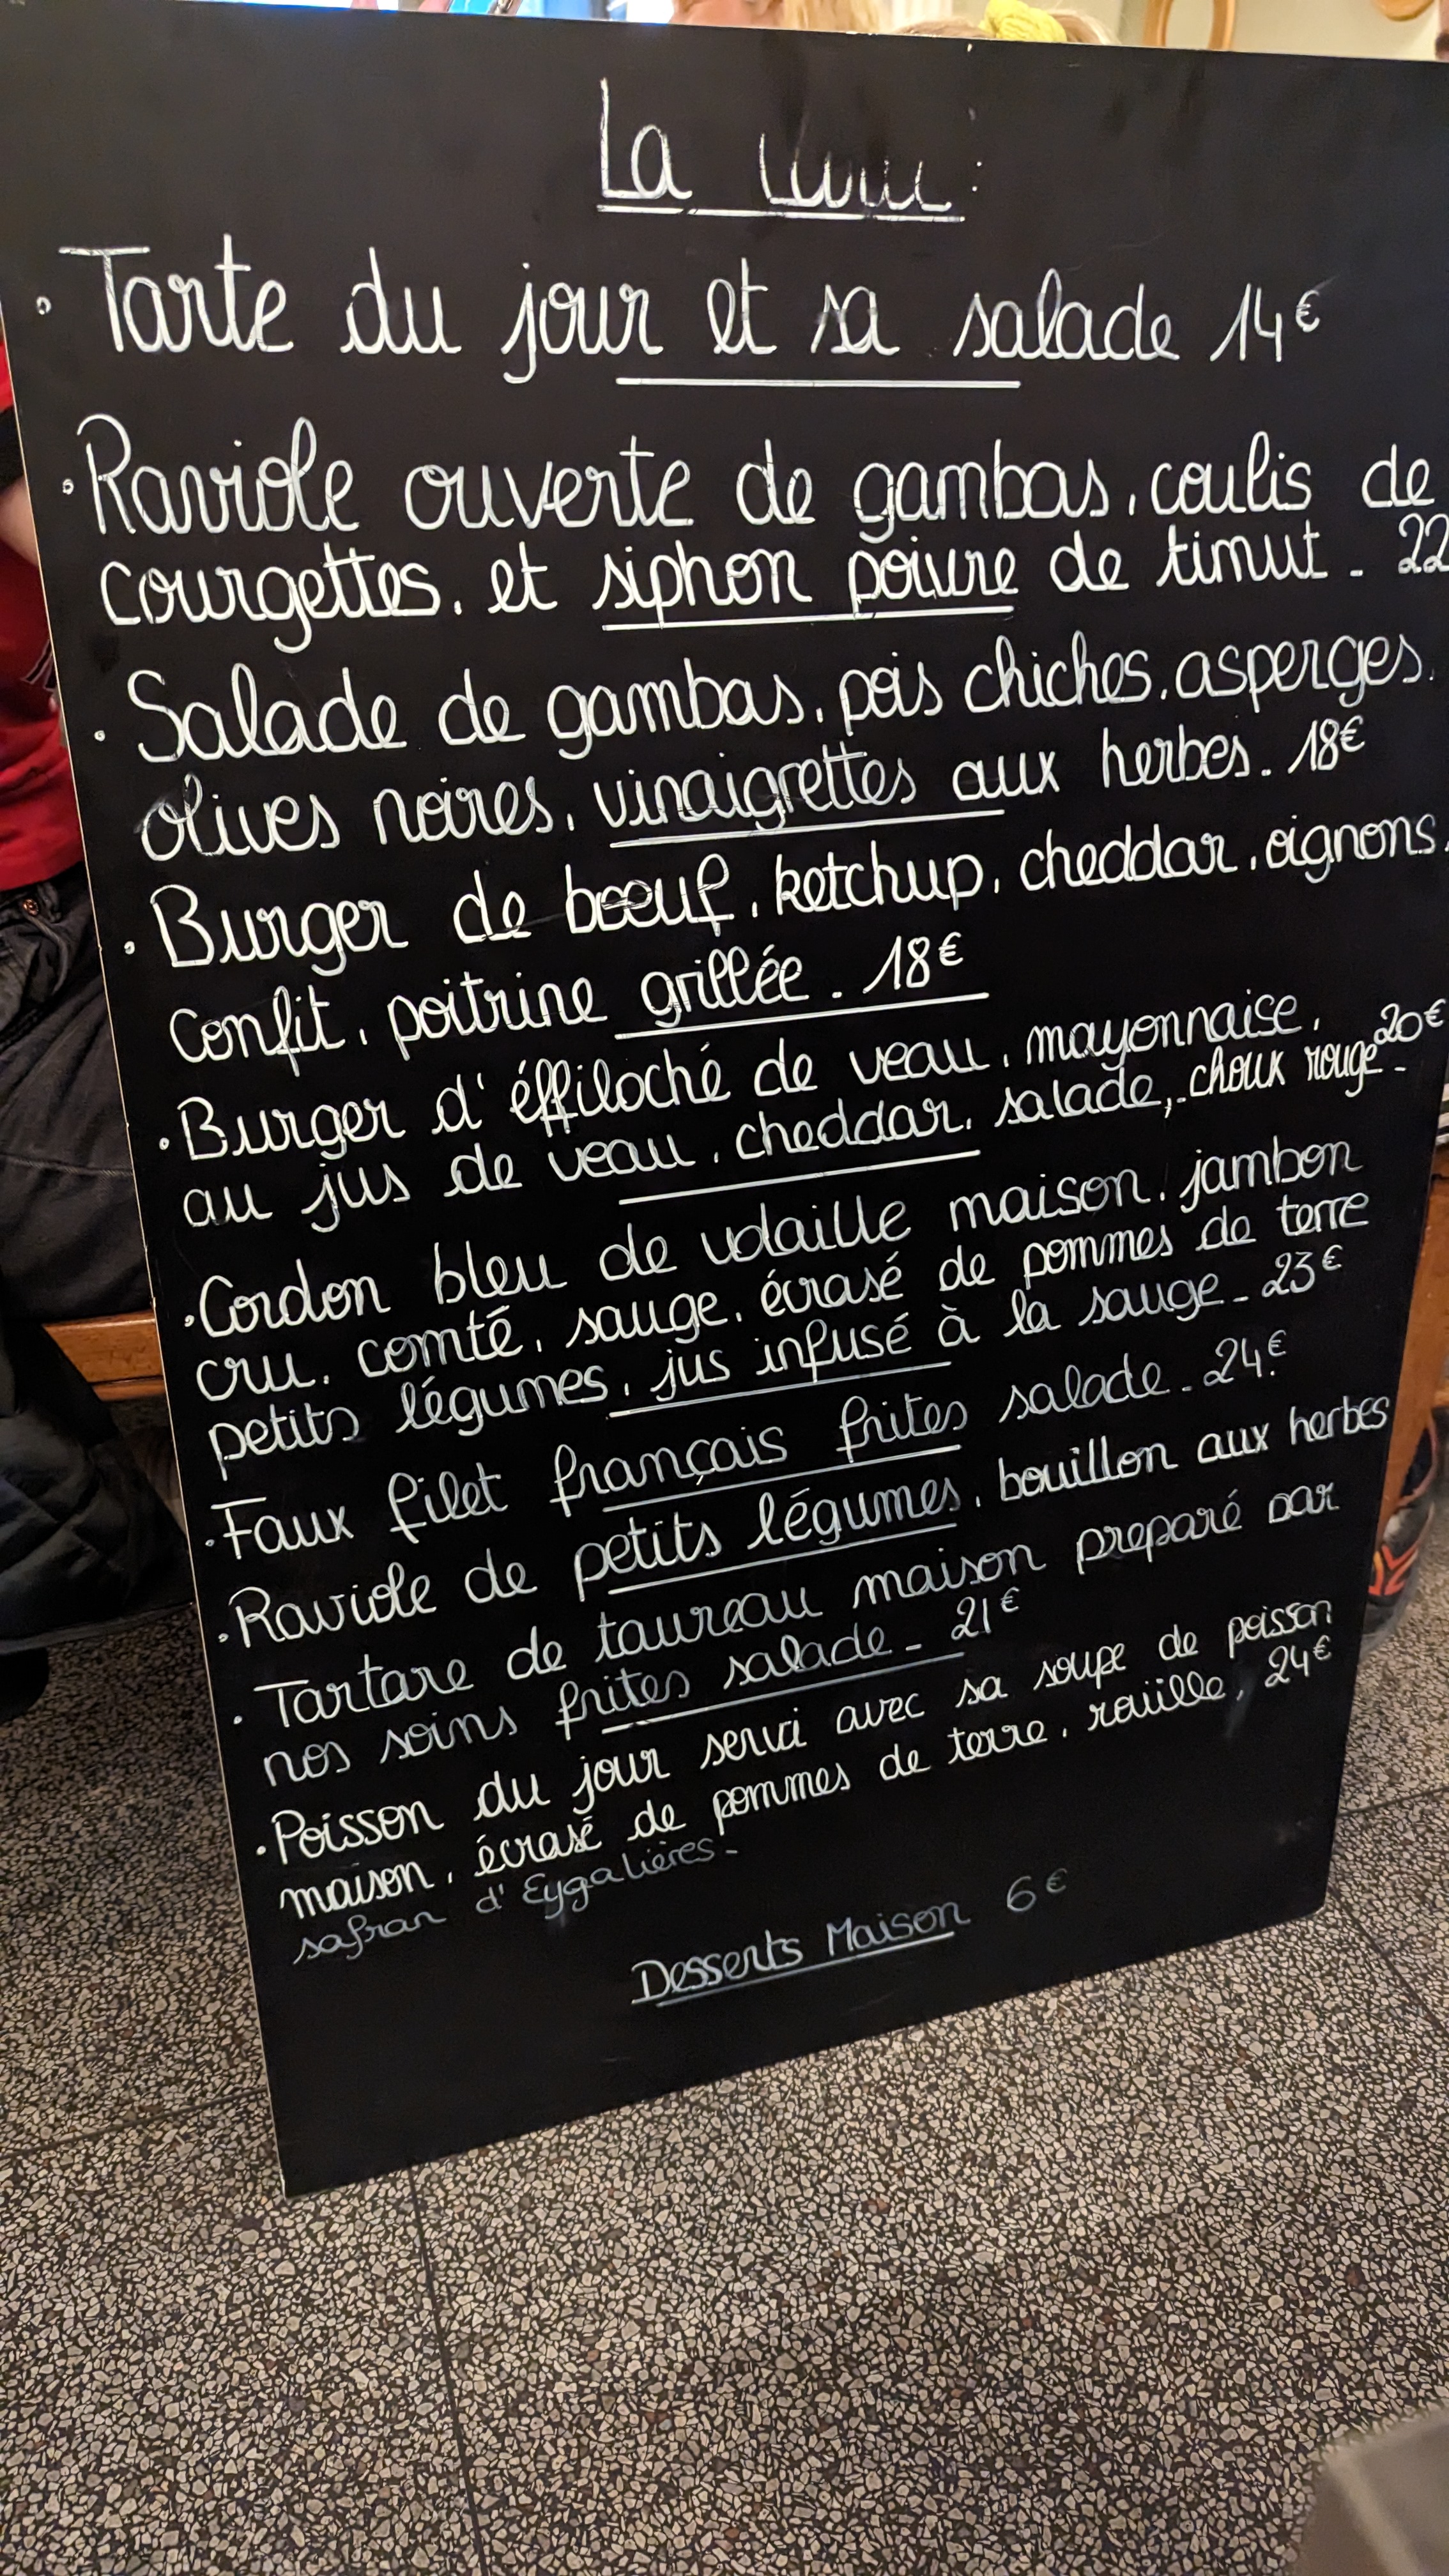 La
• Tarte du jour et sa salade 14€
• Raviole ouverte de gambas, coulis de
courgettes, et siphon poivre de timut - 22
• Salade de gambas, pois chiches, asperges,
olives noires, vinaigrettes aux herbes - 18€
• Burger de boeuf, ketchup, cheddar, oignons,
Confit, poitrine grillée - 18€
• Burger d'éffiloché de veau, mayonnaise,
au jus de veau, cheddar, salade, choux rouge - 20€
• Cordon bleu de volaille maison, jambon
cru, comté, sauge, écrasé de pommes de terre
petits légumes, jus infusé à la sauge - 23€
• Faux filet français frites salade - 24€
• Raviole de petits légumes, bouillon aux herbes
• Tartare de taureau maison preparé par
nos soins frites salade - 21€
• Poisson du jour servi avec sa soupe de poisson
maison, écrasé de pommes de terre, rouille, 24€
safran d'Eygalières -
Desserts Maison 6€